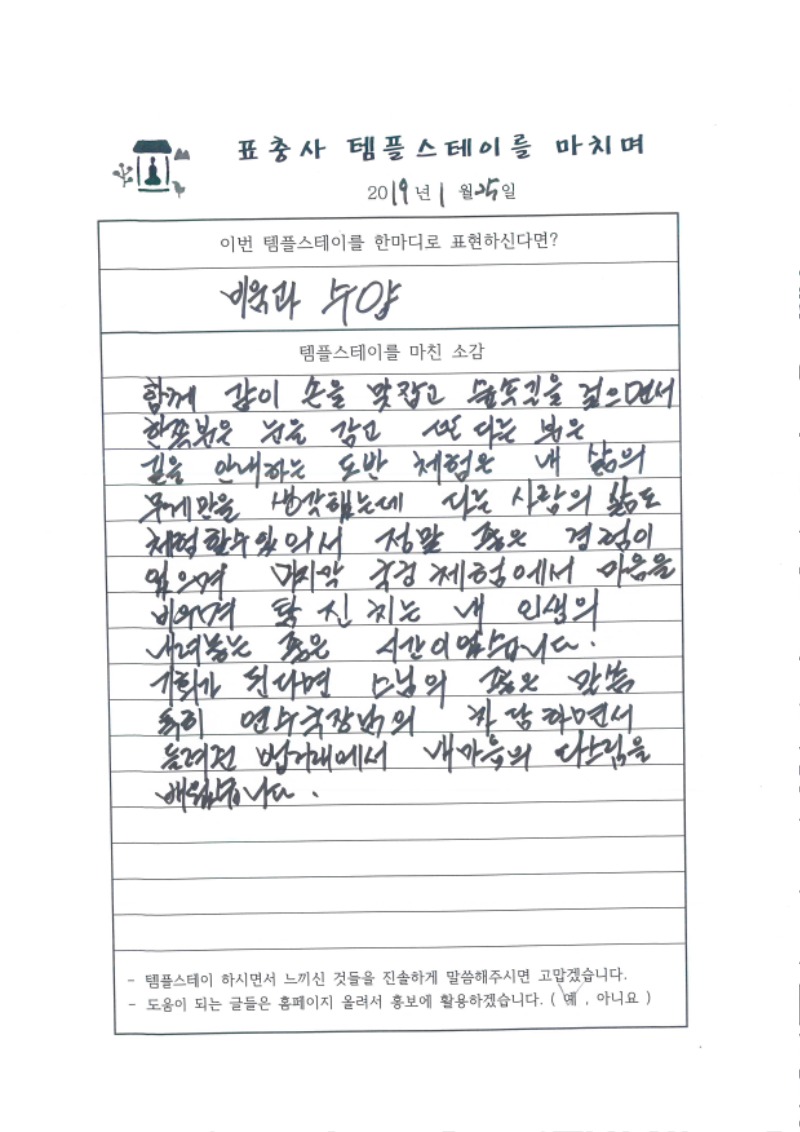 표충사 템플스테이를 마치며
2019년 1월 25일
이번 템플스테이를 한마디로 표현하신다면?
비움과 수양
템플스테이를 마친 소감
함께 같이 손을 맞잡고 숲속길을 걸으면서
한쪽분은 눈을 감고 또 다른 분은
길을 안내하는 도반 체험은 내 삶의
무게만을 생각했는데 다른 사람의 삶도
체험할수있의서 정말 좋은 경험이
였으며 마지막 체험에서 마음을
비우며 내 인생의
내려놓는 좋은 시간이였습니다.
기회가 된다면 스님의 좋은 말씀
특히 연수국장님의 차담하면서
들려준 내마음의 다스림을
배웠습니다.
- 템플스테이 하시면서 느끼신 것들을 진솔하게 말씀해주시면 고맙겠습니다.
- 도움이 되는 글들은 홈페이지 올려서 홍보에 활용하겠습니다. ( 예 , 아니요 )